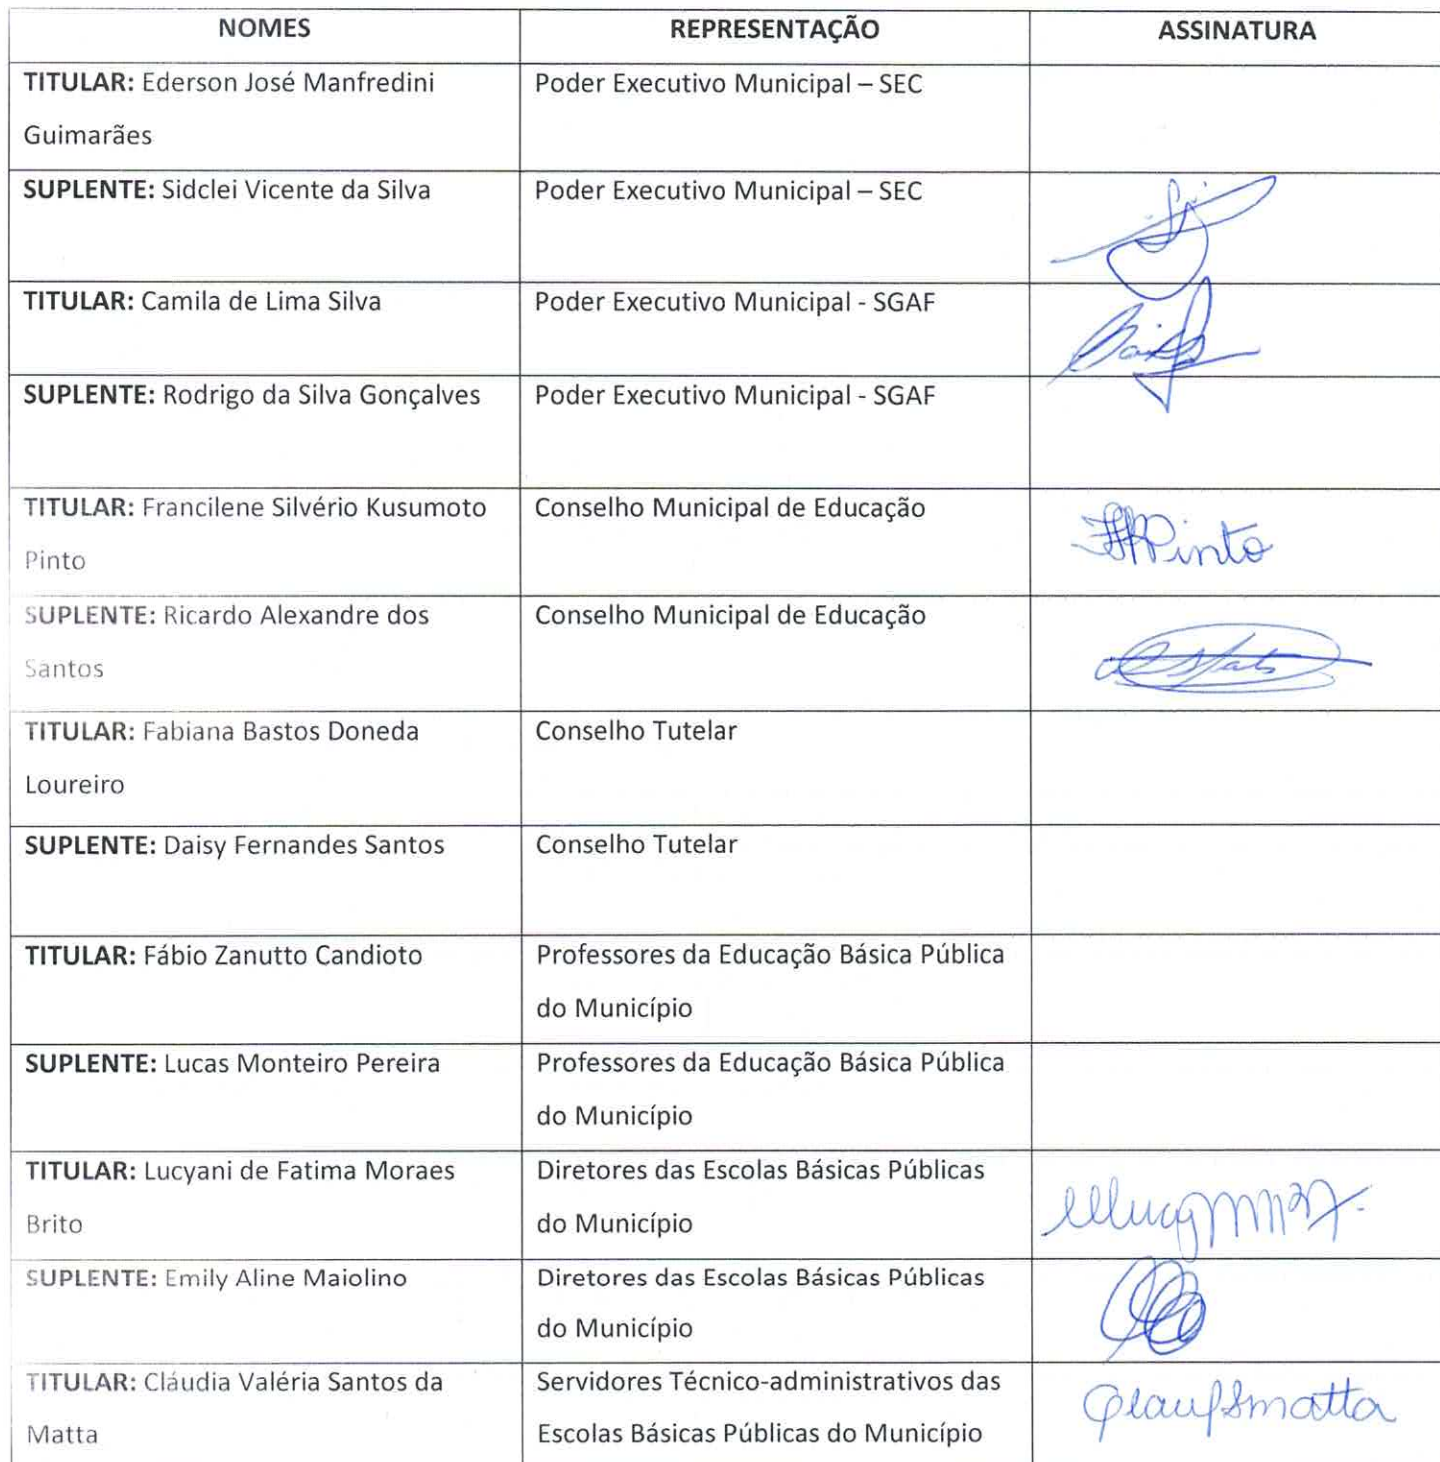 NOMES REPRESENTAÇÃO ASSINATURA
TITULAR: Ederson José Manfredini Poder Executivo Municipal – SEC
Guimarães
SUPLENTE: Sidclei Vicente da Silva Poder Executivo Municipal – SEC
TITULAR: Camila de Lima Silva Poder Executivo Municipal - SGAF
SUPLENTE: Rodrigo da Silva Gonçalves Poder Executivo Municipal - SGAF
TITULAR: Francilene Silvério Kusumoto Conselho Municipal de Educação
Pinto Pinto
SUPLENTE: Ricardo Alexandre dos Conselho Municipal de Educação
Santos
TITULAR: Fabiana Bastos Doneda Conselho Tutelar
Loureiro
SUPLENTE: Daisy Fernandes Santos Conselho Tutelar
TITULAR: Fábio Zanutto Candioto Professores da Educação Básica Pública
do Município
SUPLENTE: Lucas Monteiro Pereira Professores da Educação Básica Pública
do Município
TITULAR: Lucyani de Fatima Moraes Diretores das Escolas Básicas Públicas
Brito do Município
SUPLENTE: Emily Aline Maiolino Diretores das Escolas Básicas Públicas
do Município
TITULAR: Cláudia Valéria Santos da Servidores Técnico-administrativos das
Matta Escolas Básicas Públicas do Município